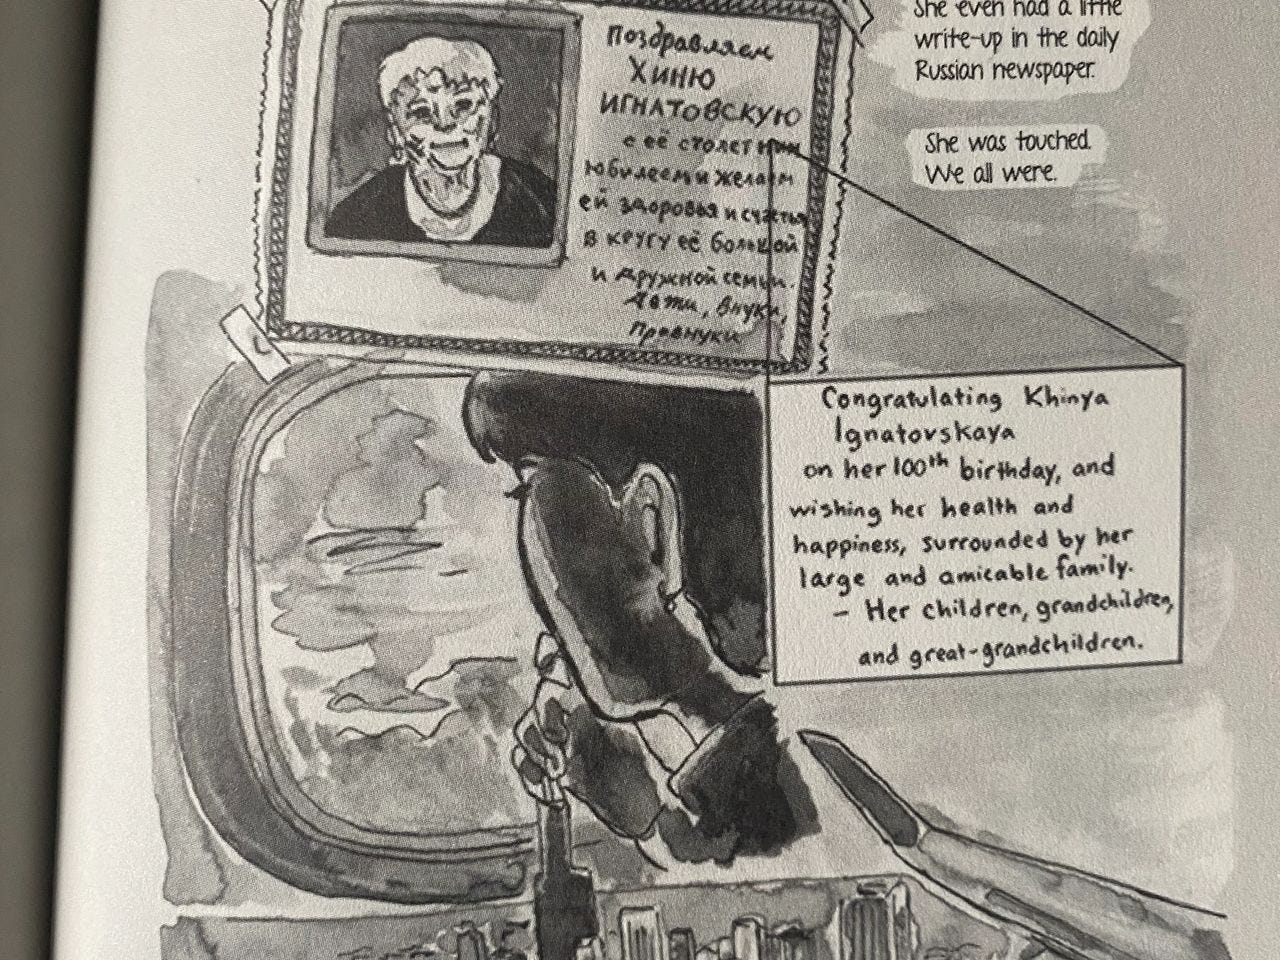 She even had a little
write-up in the daily
Russian newspaper.
She was touched.
We all were.
Поздравляем
Хиню
Игнатовскую
с её столетним
юбилеем и желаем
ей здоровья и счастья
в кругу её большой
и дружной семьи.
Дети, внуки,
правнуки
Congratulating Khinya
Ignatovskaya
on her 100th birthday, and
wishing her health and
happiness, surrounded by her
large and amicable family.
– Her children, grandchildren,
and great-grandchildren.